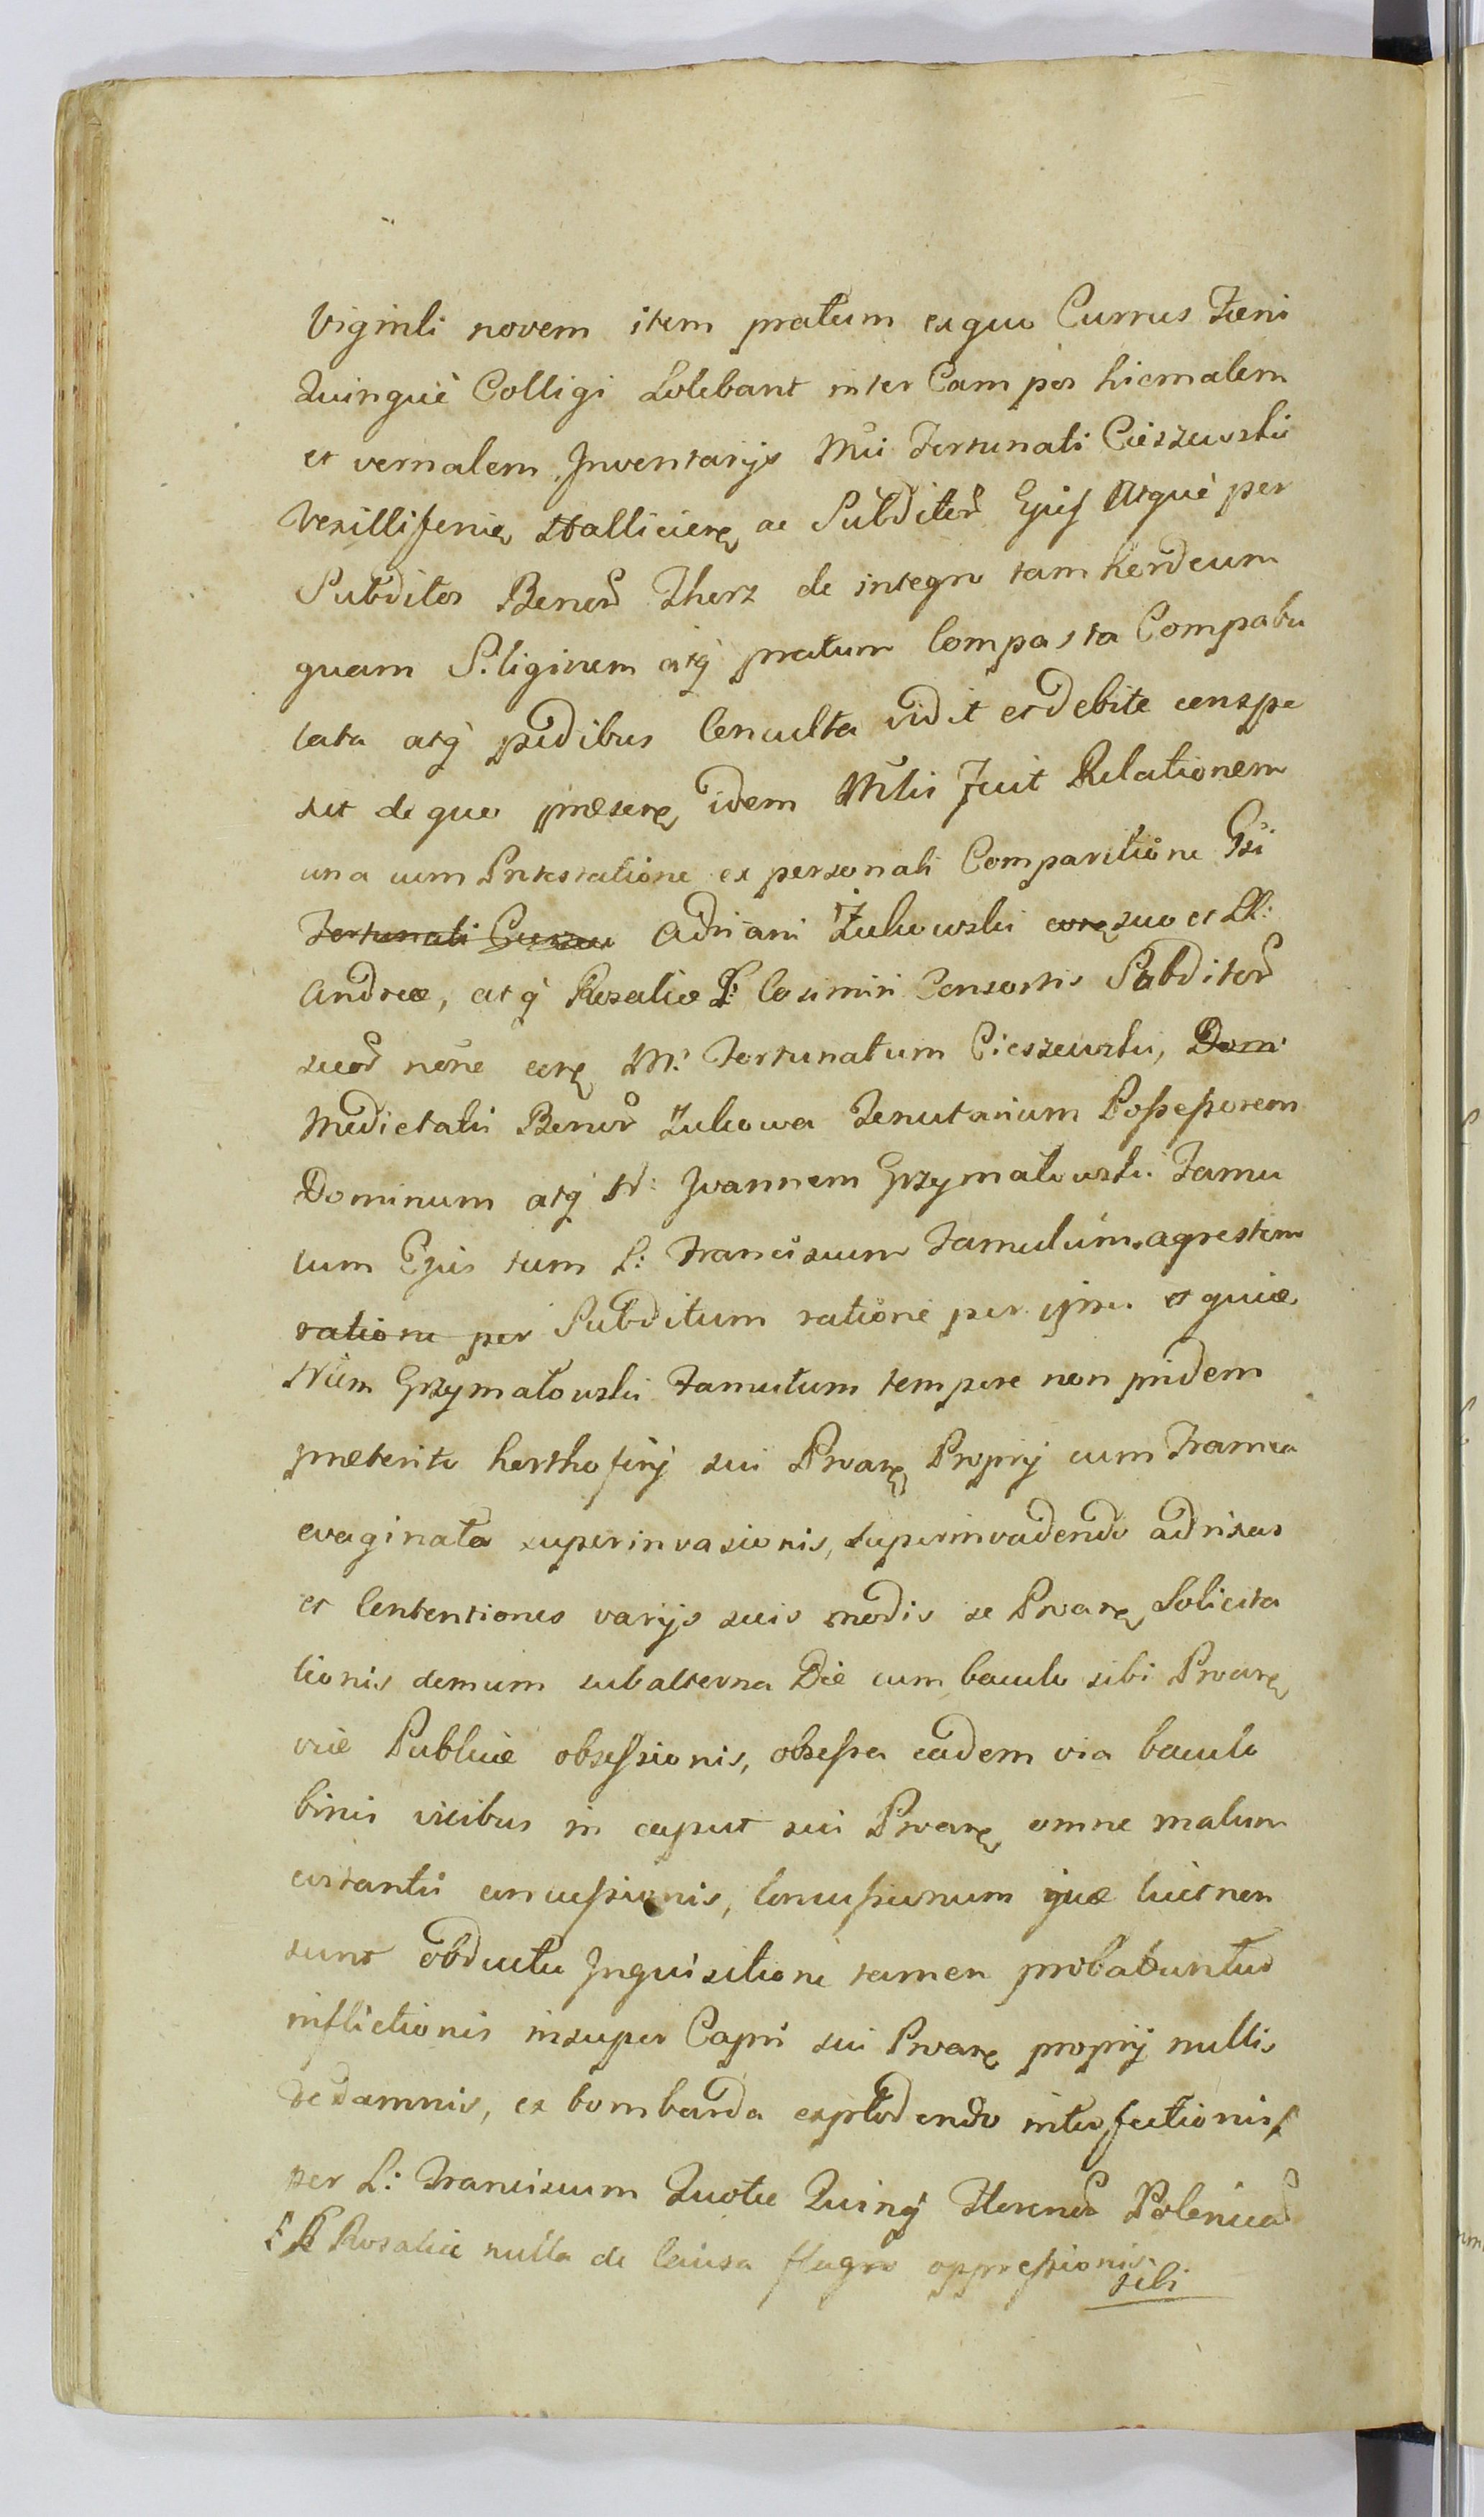 Viginti novem item pratum exquo Currus Fœni
Quinquè Colligi Solebant inter Campos hiemalem
et vernalem Inventarijs Mci Fortunati Cieszewski
Vexilliferidę Halliciens ac Subditor Ejus Atquè per
Subditos Bonor Therz de integro tam hordeum
quam Siliginem atq pratum Compasta Compabu
lata atq pedibus Conculta vidit et debite conspe
xit de quo præsens idem Mlis fecit Relationem
una cum Protestatione ex personali Comparitione Gsi
Fortunati Ciesze Adriani Żukowski suo et LL:
Andreæ, atq Rosaliæ L: Casimiri Consortis Subditor
suor nõne M: Fortunatum Cieszewski, Dom
Medietatis Bonor Zukowa Tenutarium Possessorem
Dominum atq N: Joannem Grzymałowski Famu
lum Ejus tum L: Franciscum Famulum agrestem
ratione per Subditum ratione per ipsu et quia
Nlem Grzymałowski Famulum tempore non pridem
præterito sui Proane Proprij cum Framea
evaginata superinvasionis, superinvadendo ad rixas
et Contentiones varijs suis modis se Proane Solicita
tionis demum subalterna Die cum baculo sibi Proane
viæ Publicæ obsessionis, obsessa eadem via baculo
binis vicibus in caput sui Proane omne malum
evitantis concussionis, Concussionum quæ licet non
sunt obducta Inquisitione tamen probabuntur
inflictionis insuper Capri sui Proane proprij nullis
de damnis, ex bombarda explodendo interfectionis
per L: Franciscum Quotæ Quinq Florenor Polonical
L Rosaliæ nulla de Causa flagro oppressionis
sibi